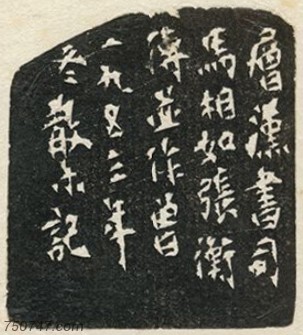 層漢書司
馬相如張衡
傳並作曾
一九五三年
冬散木記
750747.com